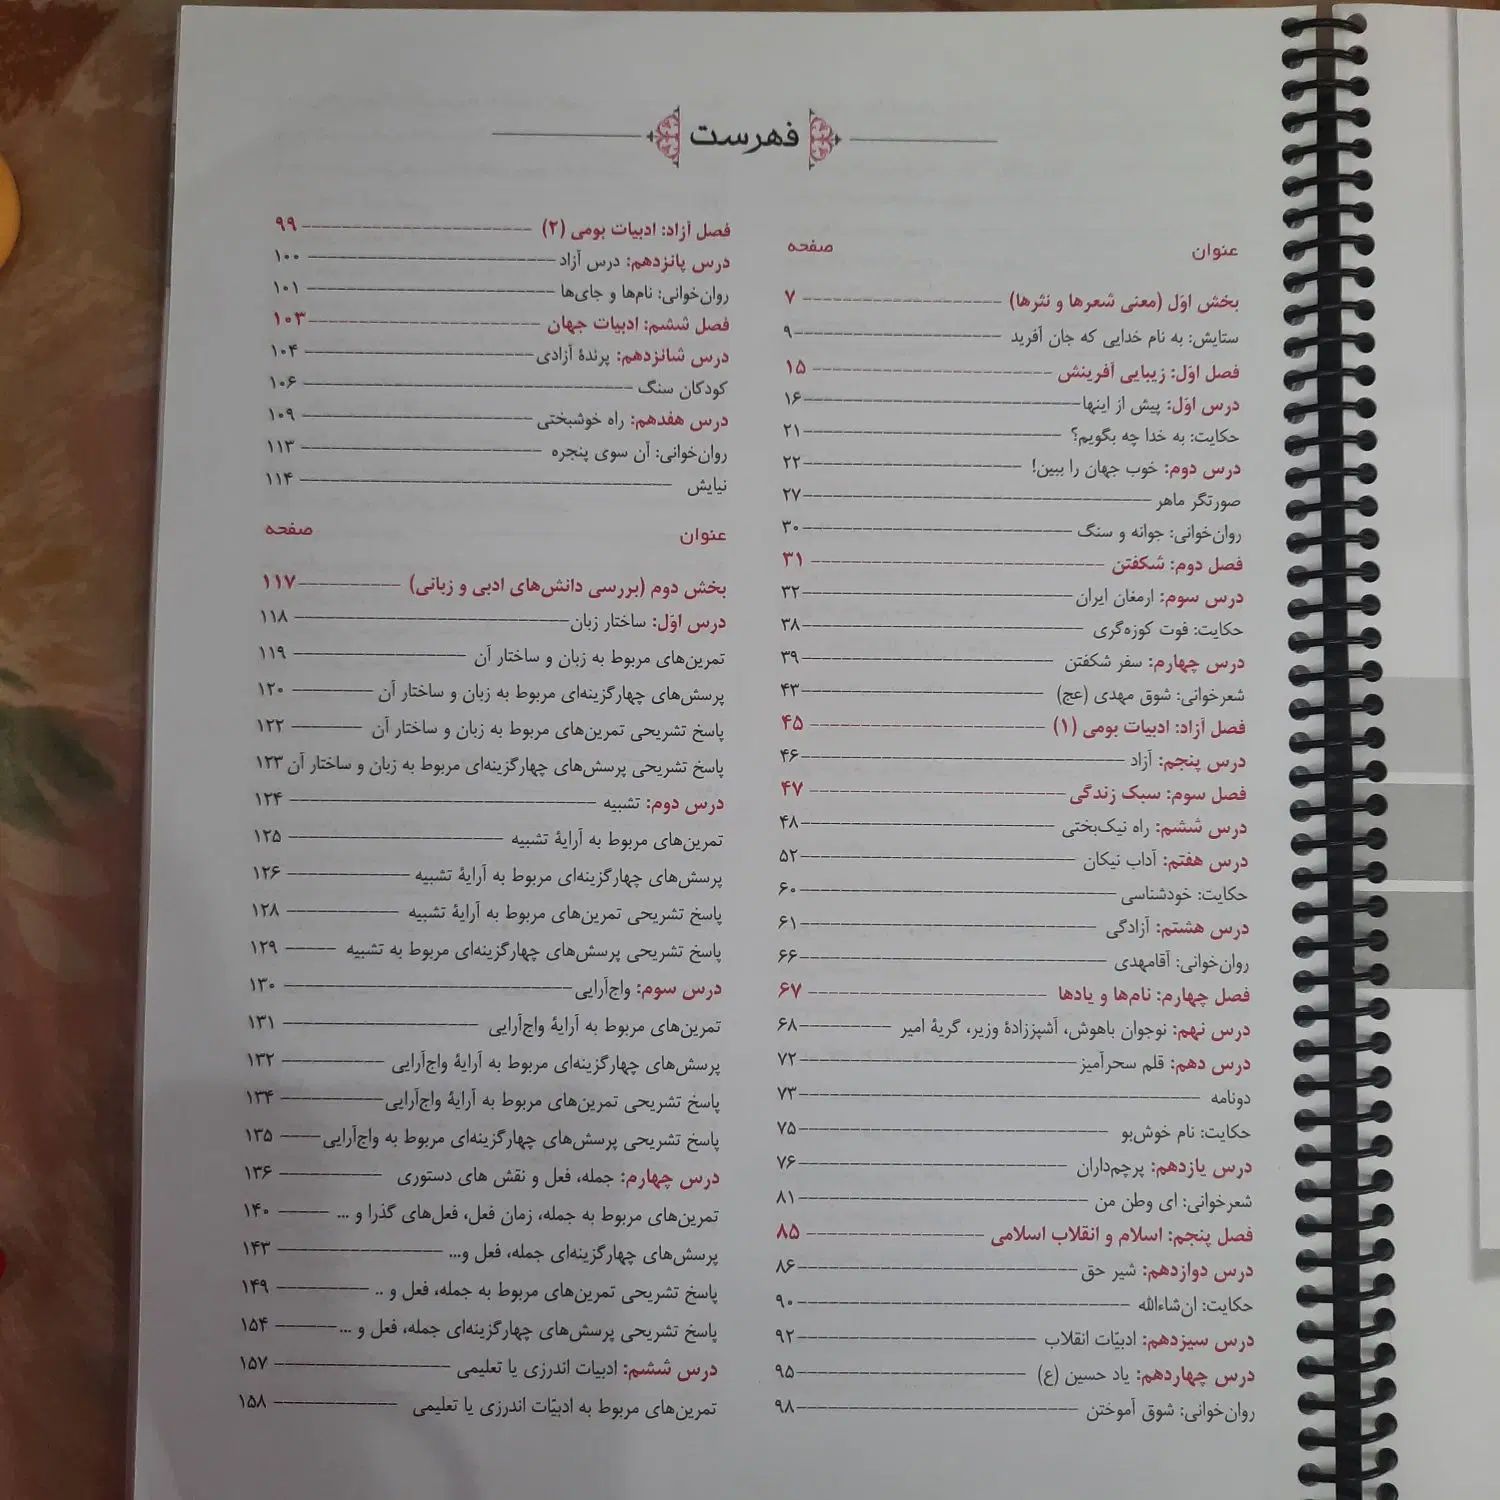 فهرست
عنوان صفحه
بخش اوّل (معنی شعرها و نثرها) ۷
ستایش: به نام خدایی که جان آفرید ۹
فصل اوّل: زیبایی آفرینش ۱۵
درس اوّل: پیش از اینها ۱۶
حکایت: به خدا چه بگویم؟ ۲۱
درس دوم: خوب جهان را ببین! ۲۲
صورتگر ماهر ۲۷
روان‌خوانی: جوانه و سنگ ۳۰
فصل دوم: شکفتن ۳۱
درس سوم: ارمغان ایران ۳۲
حکایت: فوت کوزه‌گری ۳۸
درس چهارم: سفر شکفتن ۳۹
شعرخوانی: شوق مهدی (عج) ۴۳
فصل آزاد: ادبیات بومی (۱) ۴۵
درس پنجم: آزاد ۴۶
فصل سوم: سبک زندگی ۴۷
درس ششم: راه نیک‌بختی ۴۸
درس هفتم: آداب نیکان ۵۲
حکایت: خودشناسی ۶۰
درس هشتم: آزادگی ۶۱
روان‌خوانی: آقامهدی ۶۶
فصل چهارم: نام‌ها و یادها ۶۷
درس نهم: نوجوان باهوش، آشپززادهٔ وزیر، گریهٔ امیر ۶۸
درس دهم: قلم سحرآمیز ۷۲
دونامه ۷۳
حکایت: نام خوش‌بو ۷۵
درس یازدهم: پرچم‌داران ۷۶
شعرخوانی: ای وطن من ۸۱
فصل پنجم: اسلام و انقلاب اسلامی ۸۵
درس دوازدهم: شیر حق ۸۶
حکایت: ان‌شاءالله ۹۰
درس سیزدهم: ادبیّات انقلاب ۹۲
درس چهاردهم: یاد حسین (ع) ۹۵
روان‌خوانی: شوق آموختن ۹۸
فصل آزاد: ادبیات بومی (۲) ۹۹
درس پانزدهم: درس آزاد ۱۰۰
روان‌خوانی: نام‌ها و جای‌ها ۱۰۱
فصل ششم: ادبیات جهان ۱۰۳
درس شانزدهم: پرندهٔ آزادی ۱۰۴
کودکان سنگ ۱۰۶
درس هفدهم: راه خوشبختی ۱۰۹
روان‌خوانی: آن سوی پنجره ۱۱۳
نیایش ۱۱۴
عنوان صفحه
بخش دوم (بررسی دانش‌های ادبی و زبانی) ۱۱۷
درس اوّل: ساختار زبان ۱۱۸
تمرین‌های مربوط به زبان و ساختار آن ۱۱۹
پرسش‌های چهارگزینه‌ای مربوط به زبان و ساختار آن ۱۲۰
پاسخ تشریحی تمرین‌های مربوط به زبان و ساختار آن ۱۲۲
پاسخ تشریحی پرسش‌های چهارگزینه‌ای مربوط به زبان و ساختار آن ۱۲۳
درس دوم: تشبیه ۱۲۴
تمرین‌های مربوط به آرایهٔ تشبیه ۱۲۵
پرسش‌های چهارگزینه‌ای مربوط به آرایهٔ تشبیه ۱۲۶
پاسخ تشریحی تمرین‌های مربوط به آرایهٔ تشبیه ۱۲۸
پاسخ تشریحی پرسش‌های چهارگزینه‌ای مربوط به تشبیه ۱۲۹
درس سوم: واج‌آرایی ۱۳۰
تمرین‌های مربوط به آرایهٔ واج‌آرایی ۱۳۱
پرسش‌های چهارگزینه‌ای مربوط به آرایهٔ واج‌آرایی ۱۳۲
پاسخ تشریحی تمرین‌های مربوط به آرایهٔ واج‌آرایی ۱۳۴
پاسخ تشریحی پرسش‌های چهارگزینه‌ای مربوط به واج‌آرایی ۱۳۵
درس چهارم: جمله، فعل و نقش های دستوری ۱۳۶
تمرین‌های مربوط به جمله، زمان فعل، فعل‌های گذرا و ... ۱۴۰
پرسش‌های چهارگزینه‌ای جمله، فعل و... ۱۴۳
پاسخ تشریحی تمرین‌های مربوط به جمله، فعل و .. ۱۴۹
پاسخ تشریحی پرسش‌های چهارگزینه‌ای جمله، فعل و ... ۱۵۴
درس ششم: ادبیات اندرزی یا تعلیمی ۱۵۷
تمرین‌های مربوط به ادبیّات اندرزی یا تعلیمی ۱۵۸